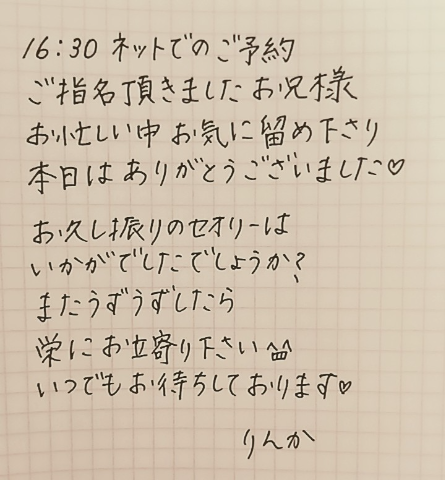 16:30 ネットでのご予約
ご指名頂きましたお兄様
お忙しい中 お気に留め下さり
本日は ありがとうございました♡
お久し振りのセオリーは
いかがでしたでしょうか?
またうずうずしたら
栄に お立寄り下さい^^
いつでもお待ちしております♡
りんか